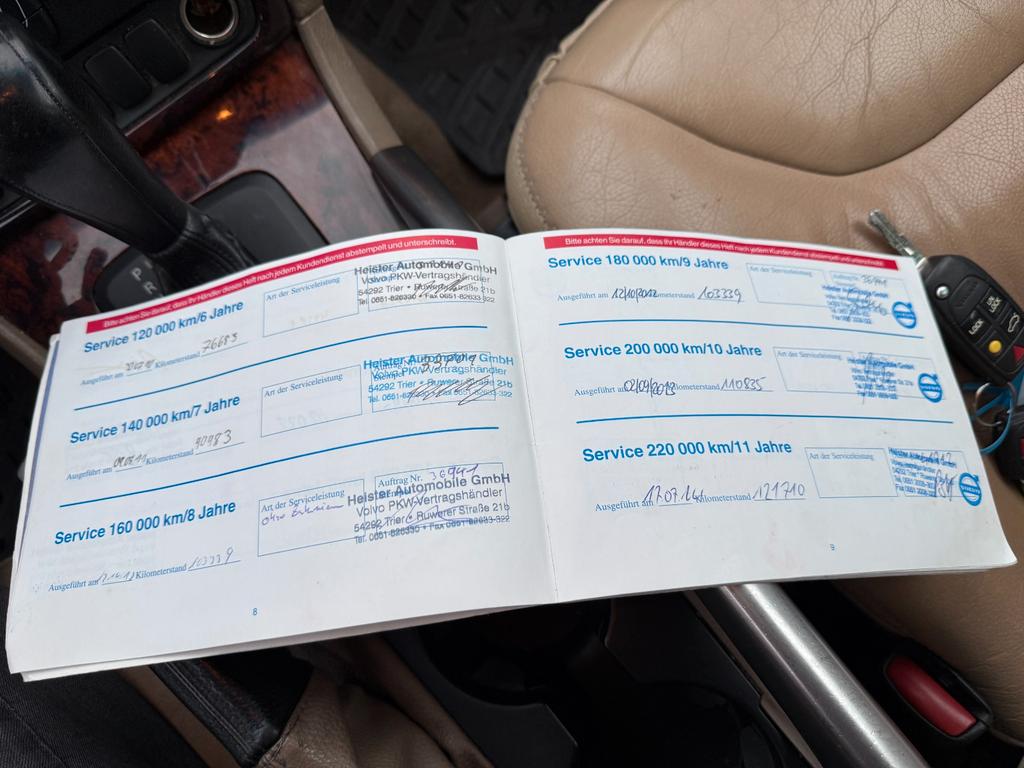 Bitte achten Sie darauf, dass Ihr Händler dieses Heft nach jedem Kundendienst abstempelt und unterschreibt.
Service 120 000 km/6 Jahre
Art der Serviceleistung
Heister Automobile GmbH
Volvo PKW-Vertragshändler
54292 Trier • Ruwerer Straße 21b
Tel. 0651-826330 • Fax 0651-82633-322
Ausgeführt am Kilometerstand 76683
Service 140 000 km/7 Jahre
Art der Serviceleistung
Heister Automobile GmbH
Volvo PKW-Vertragshändler
54292 Trier • Ruwerer Straße 21b
Ausgeführt am Kilometerstand 90983
Service 160 000 km/8 Jahre
Art der Serviceleistung
Auftrag Nr.
Heister Automobile GmbH
Volvo PKW-Vertragshändler
54292 Trier • Ruwerer Straße 21b
Tel. 0651-826330 • Fax 0651-82633-322
Ausgeführt am Kilometerstand 103339
8
Bitte achten Sie darauf, dass Ihr Händler dieses Heft nach jedem Kundendienst abstempelt und unterschreibt.
Service 180 000 km/9 Jahre
Art der Serviceleistung
Ausgeführt am 12/10/2012 Kilometerstand 103339
VOLVO
Service 200 000 km/10 Jahre
Art der Serviceleistung
Ausgeführt am 02/09/2013 Kilometerstand 110835
VOLVO
Service 220 000 km/11 Jahre
Art der Serviceleistung
Heister Automobile GmbH
Ausgeführt am 17.07.14 Kilometerstand 121710
VOLVO
9
P
R
LOCK
UN LOCK